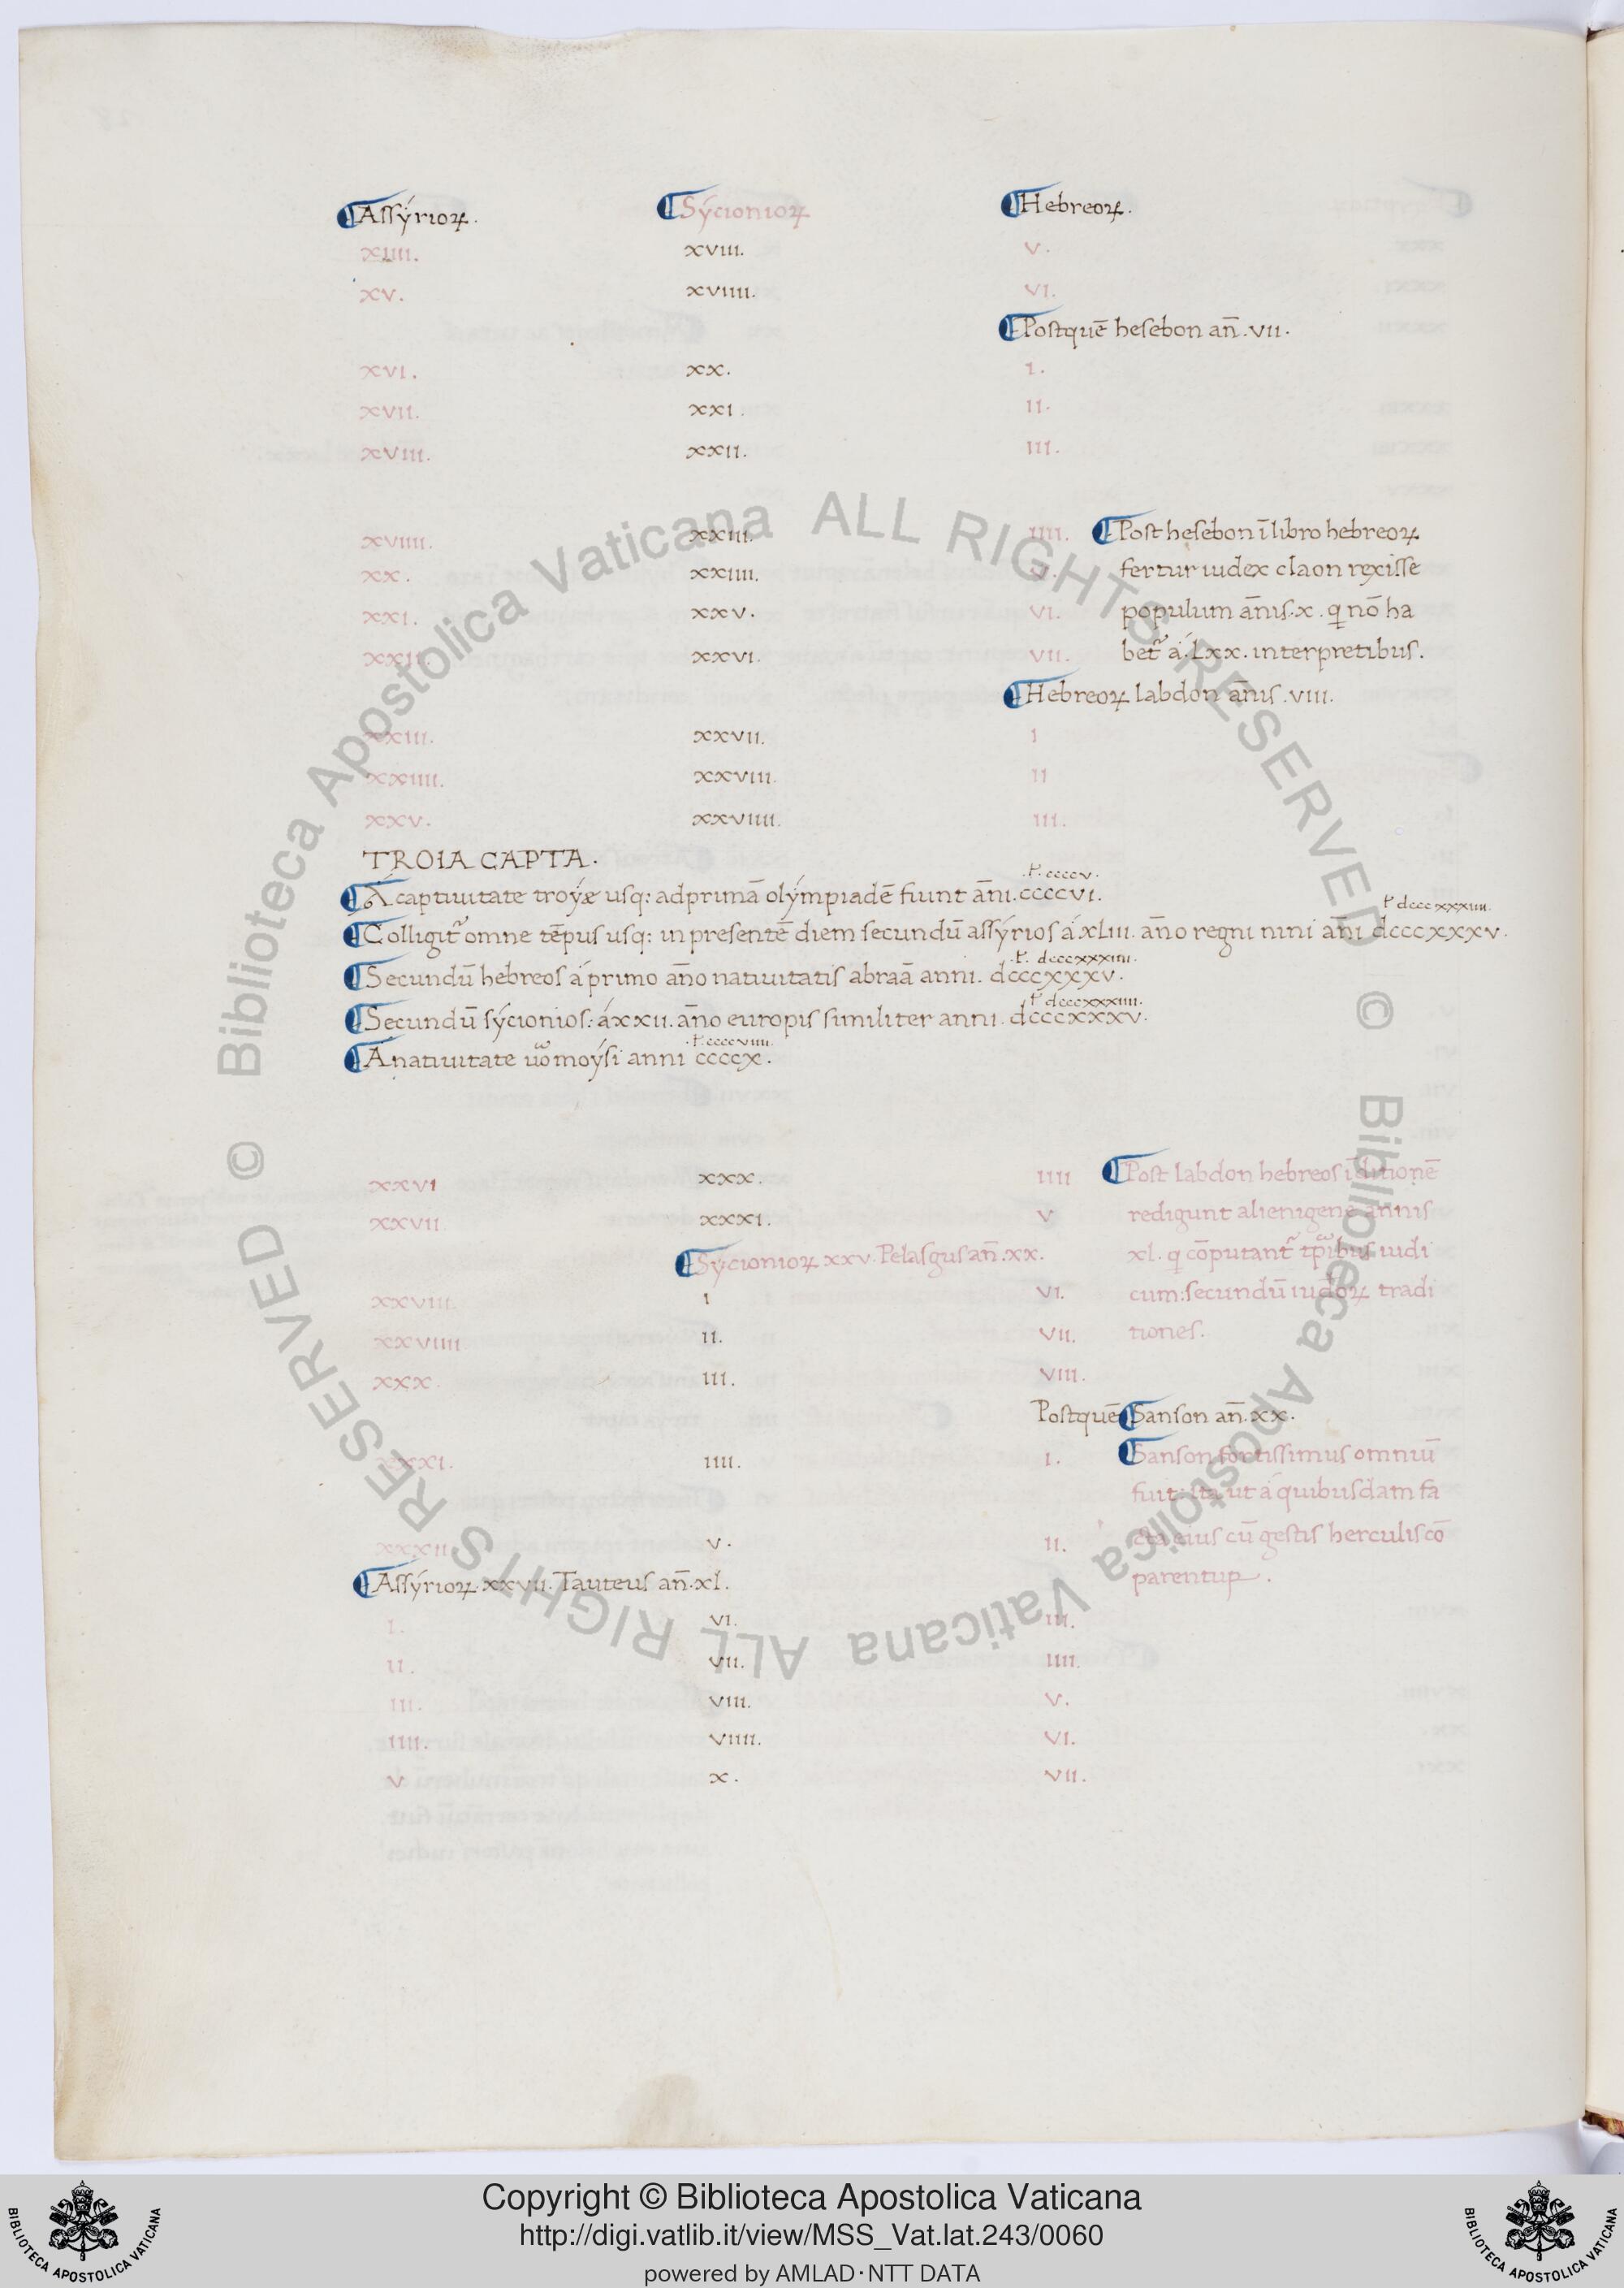 ¶Assýrioꝝ. ¶Sýcionioꝝ ¶Hebreoꝝ.
xiiii. xviii. v.
xv. xviiii. vi.
¶Postquē hesebon an̄.vii.
xvi. xx. i.
xvii. xxi. ii.
xviii. xxii. iii.
xviiii. xxiii. iiii. ¶Post hesebon ī libro hebreoꝝ
xx. xxiiii. v. fertur iudex claon rexisse
xxi. xxv. vi. populum an̄is.x. q nō ha
xxii. xxvi. vii. bet̃ á.Lxx. interpretibus.
¶Hebreoꝝ labdon an̄is.viii.
xxiii. xxvii. i
xxiiii. xxviii. ii
xxv. xxviiii. iii.
TROIA CAPTA.
ł. ccccv.
¶Á captiuitate troýæ usq: ad primā olýmpiadē fiunt an̄i.ccccvi.
ł dcccxxxiiii.
¶Colligit̃ omne tēpus usq: in presentē diem secundū assýrios á xLiii. an̄o regni nini an̄i dcccxxxv.
ł. dcccxxxiiii.
¶Secundū hebreos á primo an̄o natiuitatis abraā anni. dcccxxxv.
ł dcccxxxiiii.
¶Secundū sýcionios: á xxii. an̄o europis similiter anni. dcccxxxv.
ł. ccccviiii.
¶A natiuitate u̅o moýsi anni ccccx.
xxvi xxx. iiii ¶Post labdon hebreos ī ditionē
xxvii xxxi. v redigunt alienigene annis
¶Sýcionioꝝ xxv. Pelasgus an̄.xx. xl. q cōputant̃ tp̄ibus iudi
xxviii. i vi. cum: secundū iudoꝝ tradi
xxviiii ii. vii. tiones.
xxx. iii. viii.
Postquē ¶Sanson an̄.xx.
xxxi. iiii. i. ¶Sanson fortissimus omniū
fuit: ita ut á quibusdam fa
xxxii v. ii. cta eius cū gestis herculis cō
¶Assýrioꝝ.xxvii. Tauteus an̄.xl. parentur.
i. vi. iii.
ii. vii. iiii.
iii. viii. v.
iiii. viiii. vi.
v x. vii.
© Biblioteca Apostolica Vaticana ALL RIGHTS RESERVED © Biblioteca Apostolica Vaticana ALL RIGHTS RESERVED
BIBLIOTECA APOSTOLICA VATICANA
Copyright © Biblioteca Apostolica Vaticana
http://digi.vatlib.it/view/MSS_Vat.lat.243/0060
powered by AMLAD·NTT DATA
BIBLIOTECA APOSTOLICA VATICANA